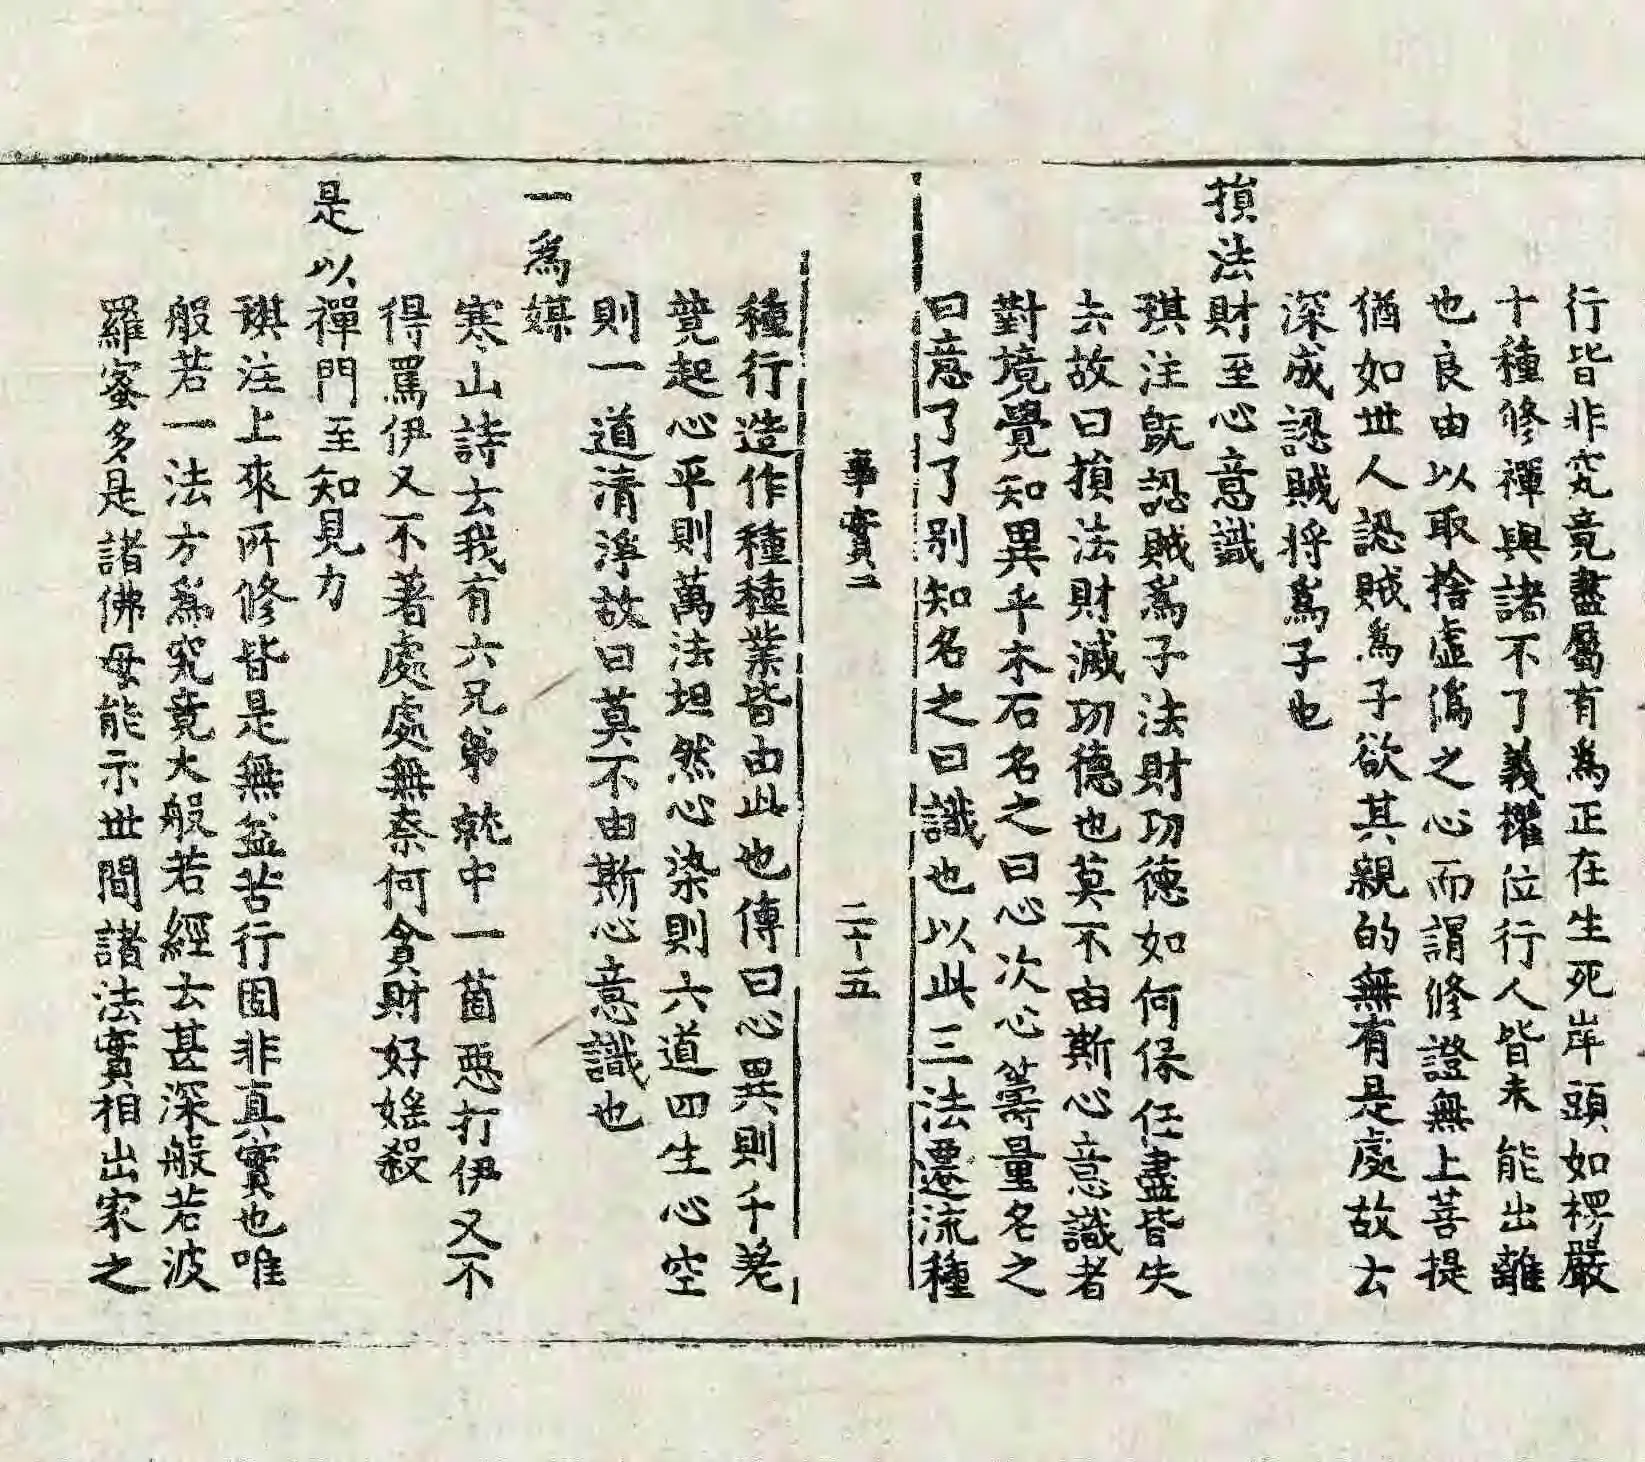 行皆非究竟盡屬有為正在生死岸頭如楞嚴
十種修禪與諸不了義權位行人皆未能出離
也良由以取捨虛偽之心而謂修證無上菩提
猶如世人認賊為子欲其親的無有是處故云
深成認賊将為子也
損法財至心意識
琪注旣認賊為子法財功德如何保任盡皆失
去故曰損法財滅功德也莫不由斯心意識者
對境覺知異乎木石名之曰心次心籌量名之
曰意了了別知名之曰識也以此三法遷流種
事實二 二十五
種行造作種種業皆由此也傳曰心異則千差
競起心平則萬法坦然心染則六道四生心空
則一道清淨故曰莫不由斯心意識也
一為媒
寒山詩云我有六兄弟就中一箇惡打伊又不
得罵伊又不著處處無奈何貪財好婬殺
是以禪門至知見力
琪注上來所修皆是無益苦行固非真實也唯
般若一法方為究竟大般若經云甚深般若波
羅蜜多是諸佛母能示世間諸法實相出家之